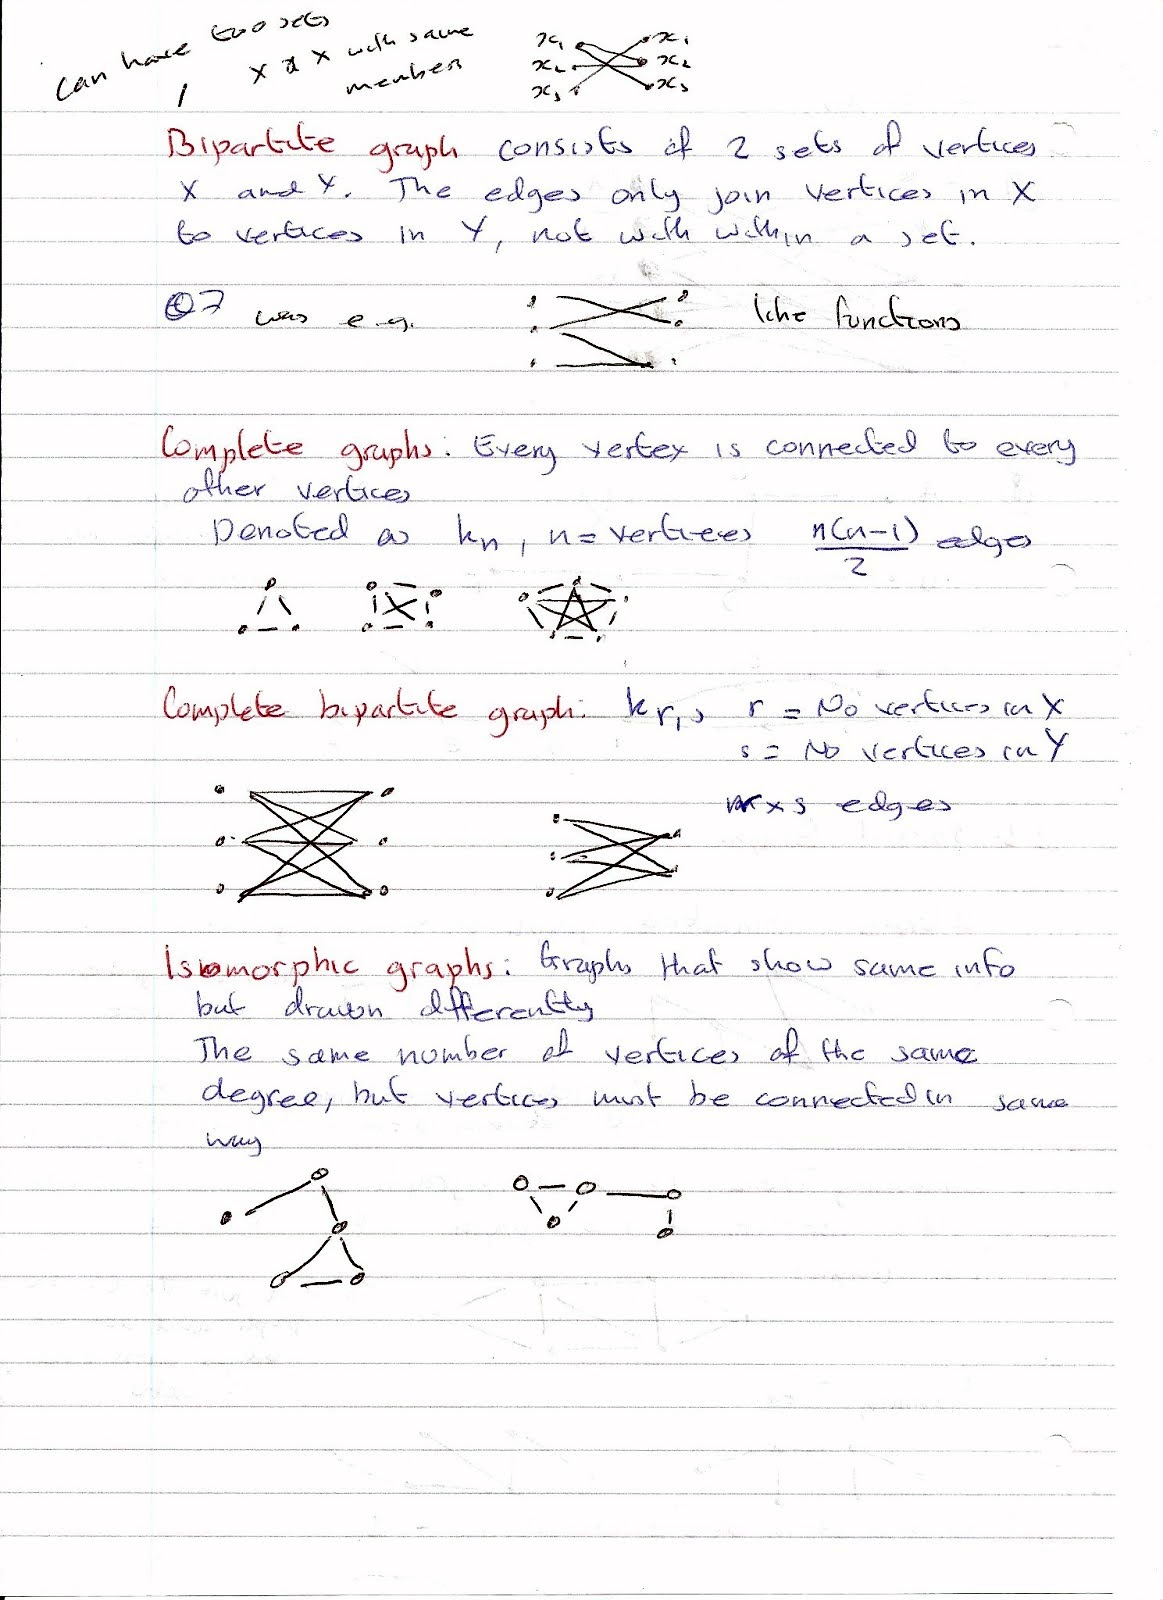 can have two sets
x x x with same
members
x₁ x₁
x₂ x₂
x₃ x₃
Bipartite graph consists of 2 sets of vertices
X and Y. The edges only join vertices in X
to vertices in Y, not with within a set.
Q7 was e.g. like functions
Complete graphs: Every vertex is connected to every
other vertices
Denoted as kn, n = vertices n(n-1)/2 edges
Complete bipartite graph: kr,s r = No vertices in X
s = No vertices in Y
r x s edges
Isomorphic graphs: Graphs that show same info
but drawn differently
The same number of vertices of the same
degree, but vertices must be connected in same
way